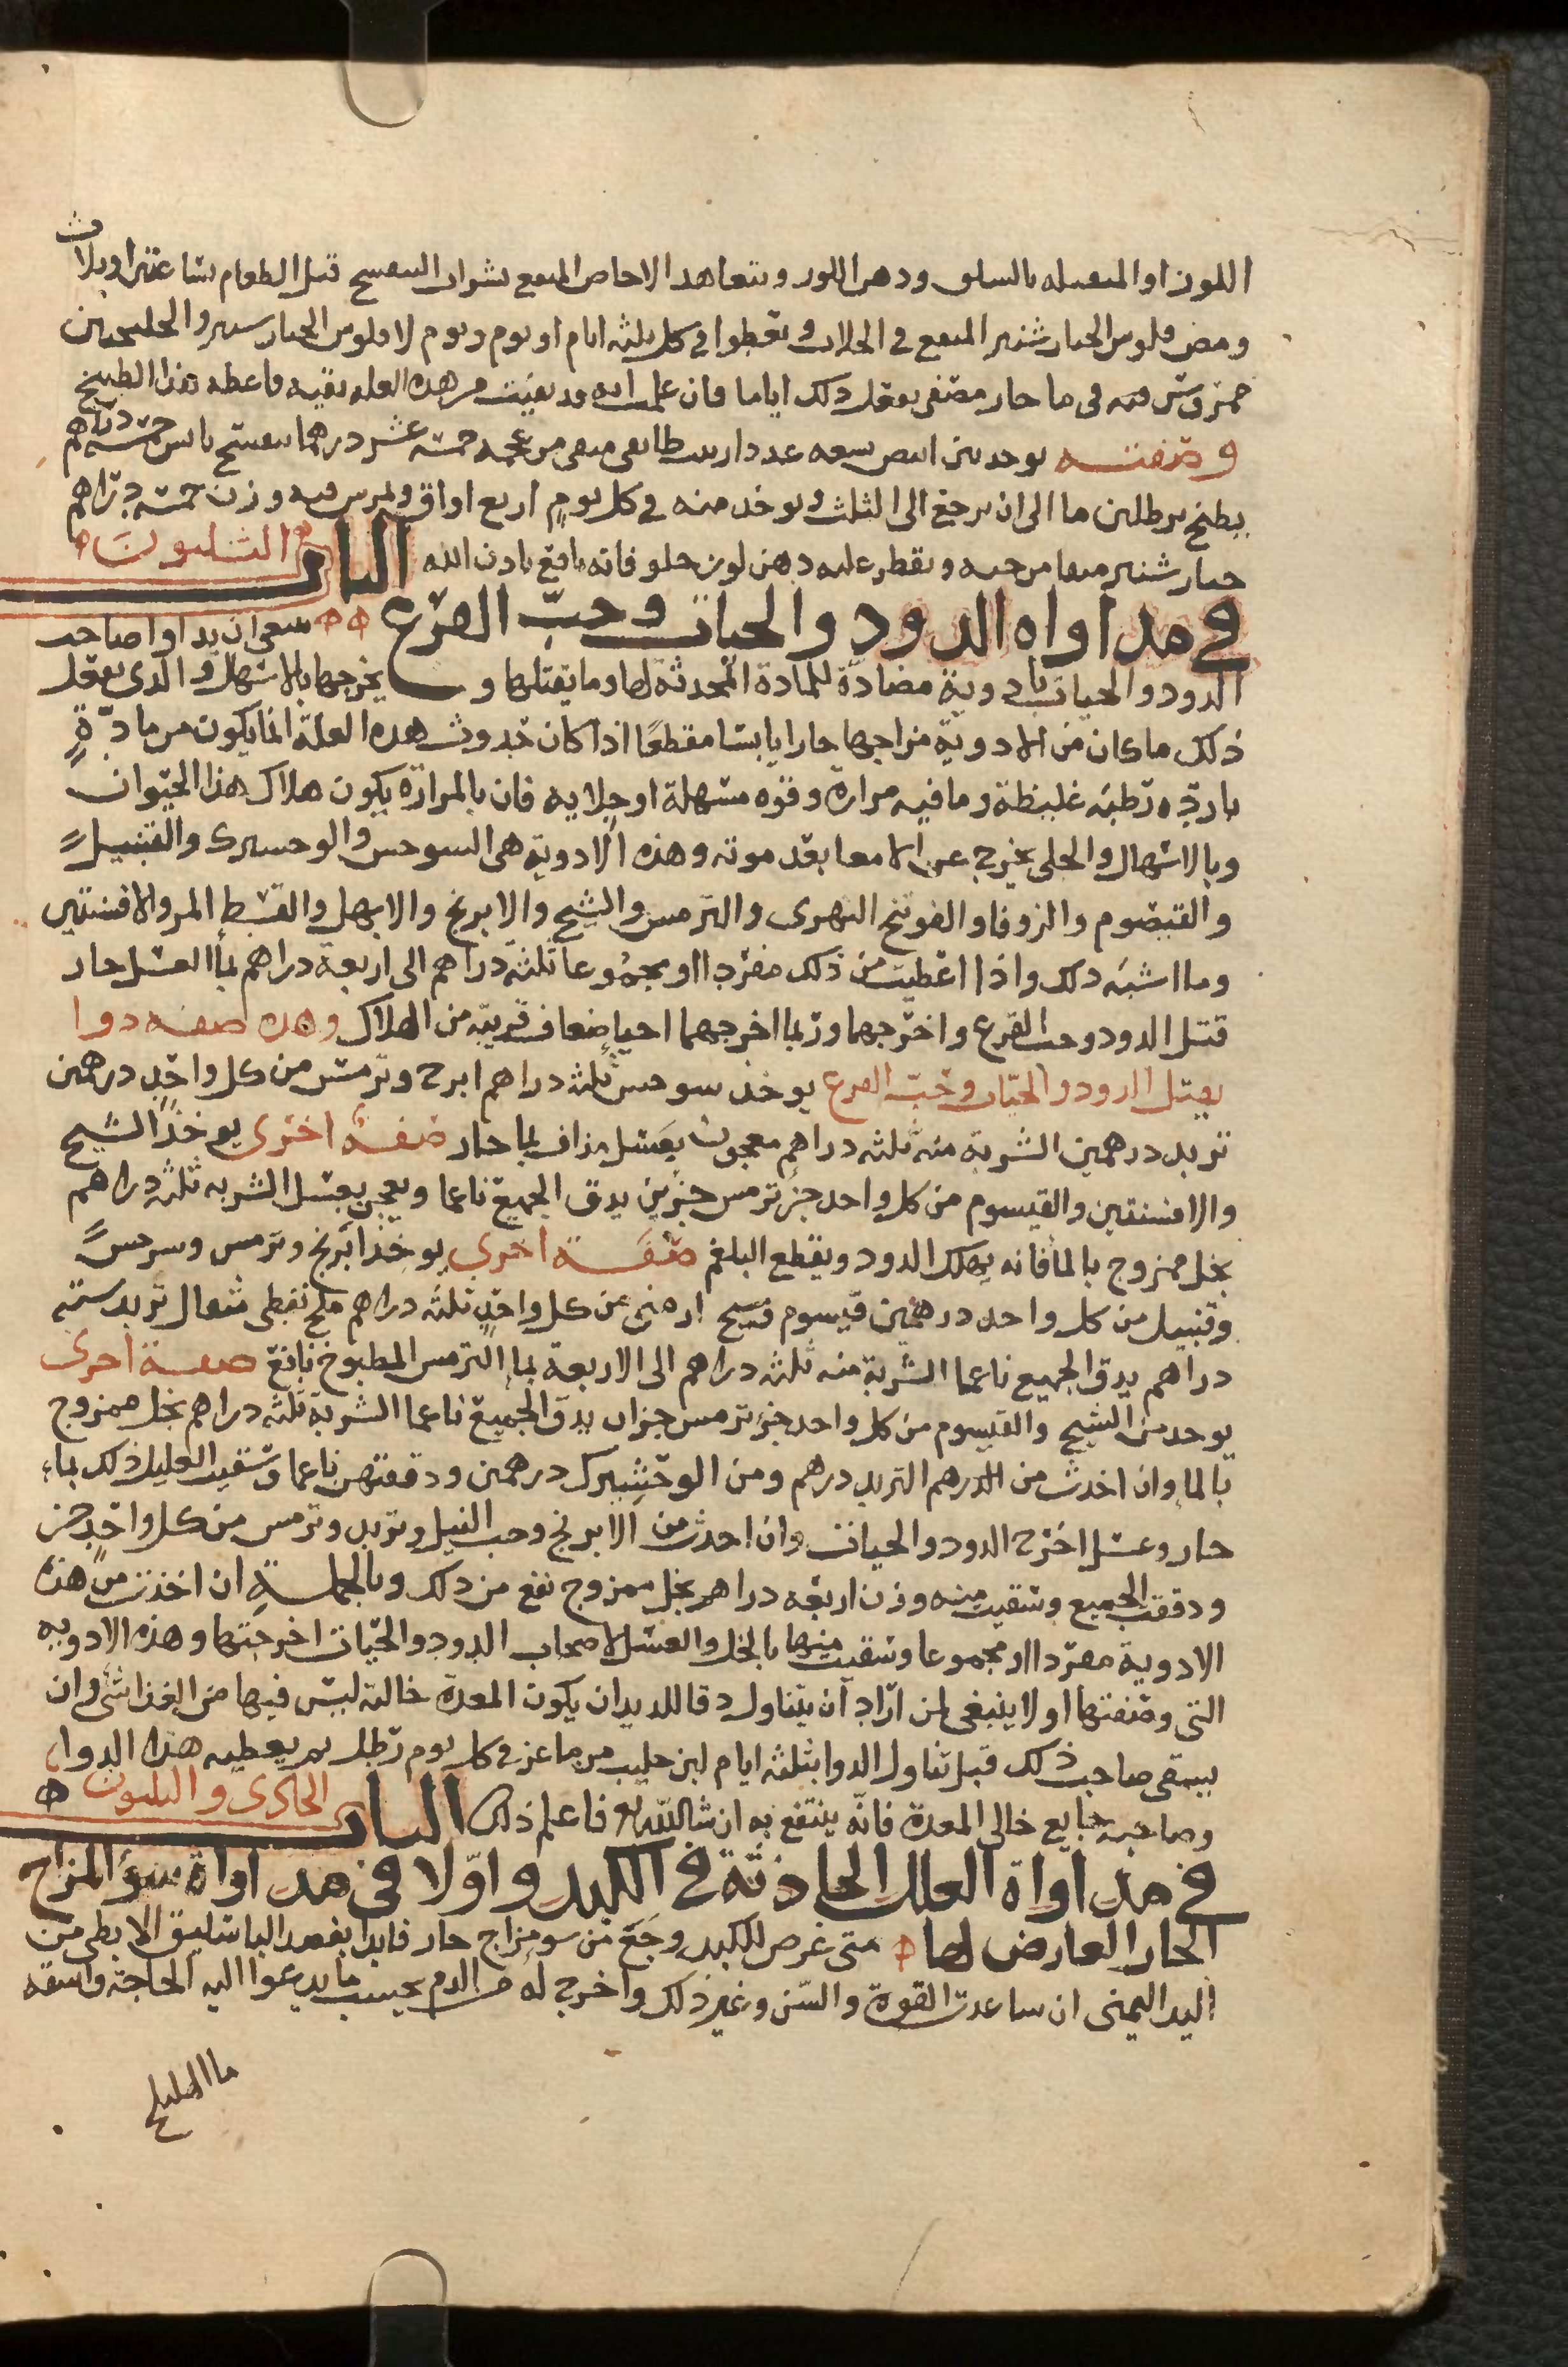 اللوز او المعموله بالسلق ودهن اللوز ويتعاهد الاجاص المنقع بشراب البنفسج قبل الطعام بساعتين او ثلاث
ومص فلوس الخيار شنبر المنقع في الجلاب ويعطوا في كل ثلثه ايام او يوم ويوم لا فلوس الخيار شنبر والجلنجبين
ممروس فيه في ما حار مصفى يفعل ذلك اياما فان علمت انه قد بقيت من هذه العله بقيه فاعطه هذا الطبيخ
وصفته يوخذ تين ابيض سبعه عدد زبيب طايفى منقى من عجمه خمسة عشر درهما بنفسج يابس خمسة دراهم
يطبخ برطلين ما الى ان يرجع الى الثلث ويوخذ منه في كل يوم اربع اواق ويمرس فيه وزن خمسة دراهم
خيار شنبر منقا من حبه ويقطر عليه دهن لوز حلو فانه نافع باذن الله الباب الثلثون
في مداواه الدود والحيات وحب القرع ينبغى ان يداوا صاحب
الدود والحيات بادوية مضادة للمادة المحدثة لها وما يقتلها و يخرجها بالاسهال والذى يفعل
ذلك ما كان من الادوية مزاجها حارا يابسا مقطعا اذا كان حدوث هذه العلة انما يكون من مادة
باردة رطبة غليظة وما فيه مرارة وقوه مسهلة او جلايه فان بالمرارة يكون هلاك هذا الحيوان
وبالاسهال والجلى يخرج عن الامعا بعد موته وهذه الادوية هى السرخس والوخشيرك والقنبيل
والقيصوم والزوفا والفوتنج النهرى والترمس والشيح والابرنج والابهل والقسط المر والافسنتين
وما اشبه ذلك واذا اعطيت من ذلك مفردا او مجموعا ثلثة دراهم الى اربعة دراهم بما العسل حار
قتل الدود وحب القرع واخرجها وربما اخرجهما احيا ضعاف قريبة من الهلاك وهذه صفة دوا
يقتل الدود والحيات وحب القرع يوخذ سرخس ثلثة دراهم ابرنج وترمس من كل واحد درهمين
تربد درهمين الشربة منه ثلثه دراهم معجون بعسل مذاف بما حار صفة اخرى يوخذ الشيح
والافسنتين والقيسوم من كل واحد جز ترمس جزين يدق الجميع ناعما ويعجن بعسل الشربه ثلثة دراهم
بخل ممزوج بالما فانه يهلك الدود ويقطع البلغم صفة اخرى يوخذ ابرنج وترمس وسرخس
وقنبيل من كل واحد درهمين قيسوم شيح ارمنى من كل واحد ثلثه دراهم ملح نفطى مثقال تربد ستة
دراهم يدق الجميع ناعما الشربة منه ثلثة دراهم الى الاربعة بما الترمس المطبوخ نافع صفة اخرى
يوخذ من الشيح والقيسوم من كل واحد جز ترمس جزان يدق الجميع ناعما الشربة ثلثه دراهم بخل ممزوج
بالما وان اخذت من الدرهم التربد درهم ومن الوخشيرك درهمين ودققتهن ناعما وسقيت العليل ذلك بماء
حار وعسل اخرج الدود والحيات وان اخذت من الابرنج وحب النيل وتربد وترمس من كل واحد جز
ودققت الجميع وسقيت منه وزن اربعه دراهم بخل ممزوج نفع من ذلك وبالجملة ان اخذت من هذه
الادوية مفردا او مجموعا وسقيت منها بالخل والعسل لاصحاب الدود والحيات اخرجتها وهذه الادويه
التى وصفتها اولا ينبغى لمن اراد ان يتناول دقا للديدان يكون المعدة خالية ليس فيها من الغذا شى وان
يسقى صاحب ذلك قبل تناول الدوا بثلثة ايام لبن حليب من ماعز في كل يوم رطل ثم يعطيه هذا الدوا
وصاحبه جايع خالى المعدة فانه ينتفع به ان شا الله تع فاعلم ذلك الباب الحادى والثلثون
في مداواة العلل الحادثة في الكبد واولا في مداواة سؤ المزاج
الحار العارض لها متى عرض للكبد وجع من سو مزاج حار فابدا بفصد الباسليق الابطى من
اليد اليمنى ان ساعدت القوة والسن وغير ذلك واخرج له من الدم بحسب ما يدعوا اليه الحاجة واسقه
ما الهليلج